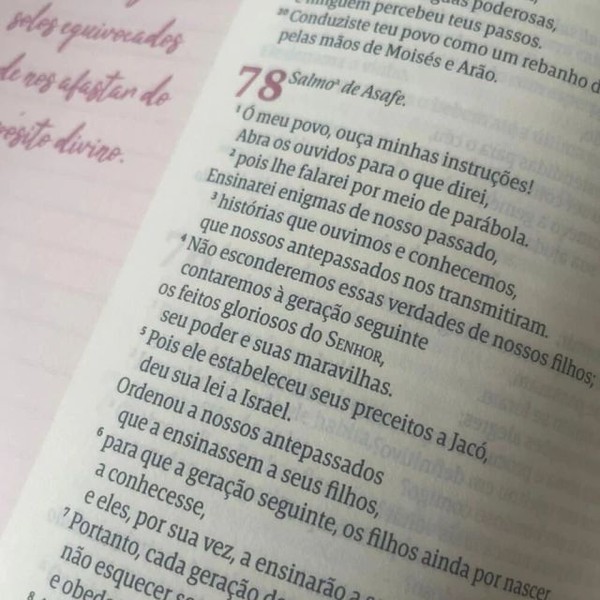 solos equivocados
de nos afastar do
pósito divino.
guas poderosas,
e ninguém percebeu teus passos.
20 Conduziste teu povo como um rebanho d
pelas mãos de Moisés e Arão.
78 Salmo de Asafe.
1 Ó meu povo, ouça minhas instruções!
Abra os ouvidos para o que direi,
2 pois lhe falarei por meio de parábola.
Ensinarei enigmas de nosso passado,
3 histórias que ouvimos e conhecemos,
que nossos antepassados nos transmitiram.
4 Não esconderemos essas verdades de nossos filhos;
contaremos à geração seguinte
os feitos gloriosos do SENHOR,
seu poder e suas maravilhas.
5 Pois ele estabeleceu seus preceitos a Jacó,
deu sua lei a Israel.
Ordenou a nossos antepassados
que a ensinassem a seus filhos,
6 para que a geração seguinte, os filhos ainda por nascer
a conhecesse,
e eles, por sua vez, a ensinarão a s
7 Portanto, cada geração de
não esquecer s
e obede
8